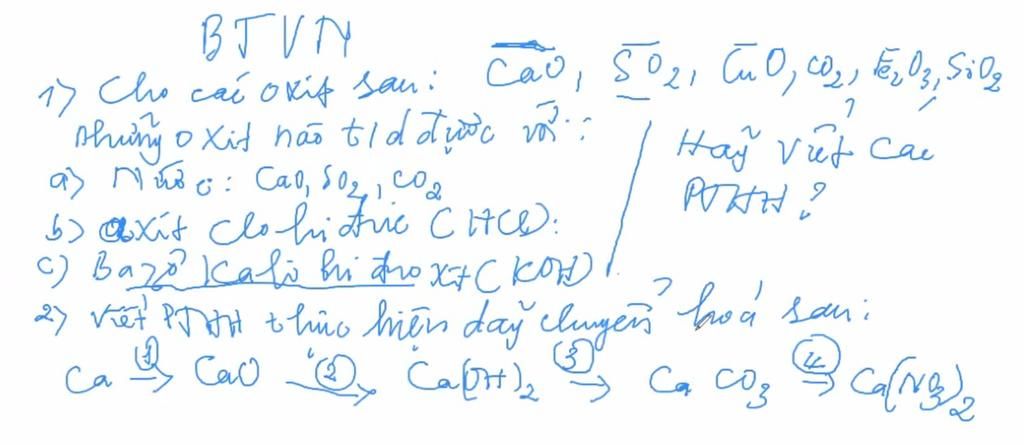 BTVN
1) Cho các oxit sau: CaO, SO2, CuO, CO2, Fe2O3, SiO2
Những oxit nào t/d được với:
a) Nước: CaO, SO2, CO2
b) axit clohiđric (HCl):
c) Bazơ Kali hiđroxit (KOH)
Hãy viết các
PTHH?
2) Viết PTHH thực hiện dãy chuyển hoá sau:
Ca (1)→ CaO (2)→ Ca(OH)2 (3)→ CaCO3 (4)→ Ca(NO3)2